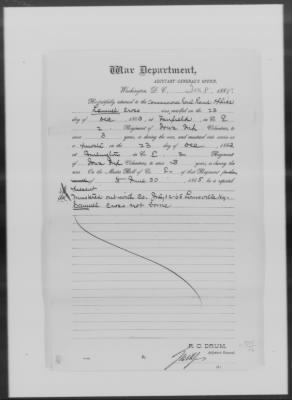 War Department,
ADJUTANT GENERAL'S OFFICE,
Washington, D. C.,
Respectfully returned to the Commissioner
was enrolled on the 23
day of Dec at Fairfield, in Co. E
2 Regiment of Iowa Volunteers, to
serve 3 years, or during the war, and mustered into service as
a on the 23 day of Dec
at Burlington in Co. E 2 Regiment
of Iowa Volunteers, to serve 3 years, or during the
war. On the Muster Roll of Co. E of that Regiment
June 30 1865, he is reported
present
Mustered out with Co. July 12-65 Louisville Ky.
Cross not borne
R. C. DRUM,
Adjutant General.